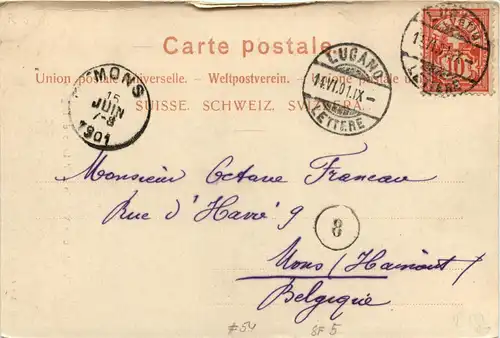 Carte postale.
Union postale universelle. – Weltpostverein. – Unione postale
SUISSE. SCHWEIZ. SVIZZERA.
LUGANO
14.VI.01.IX–
LETTERE
LUGANO
LETTERE
10
MONS
15
JUIN
7-8
1901
Monsieur Octave Franeau
Rue d'Havré 9
8
Mons (Hainaut)
Belgique
#54
SF 5